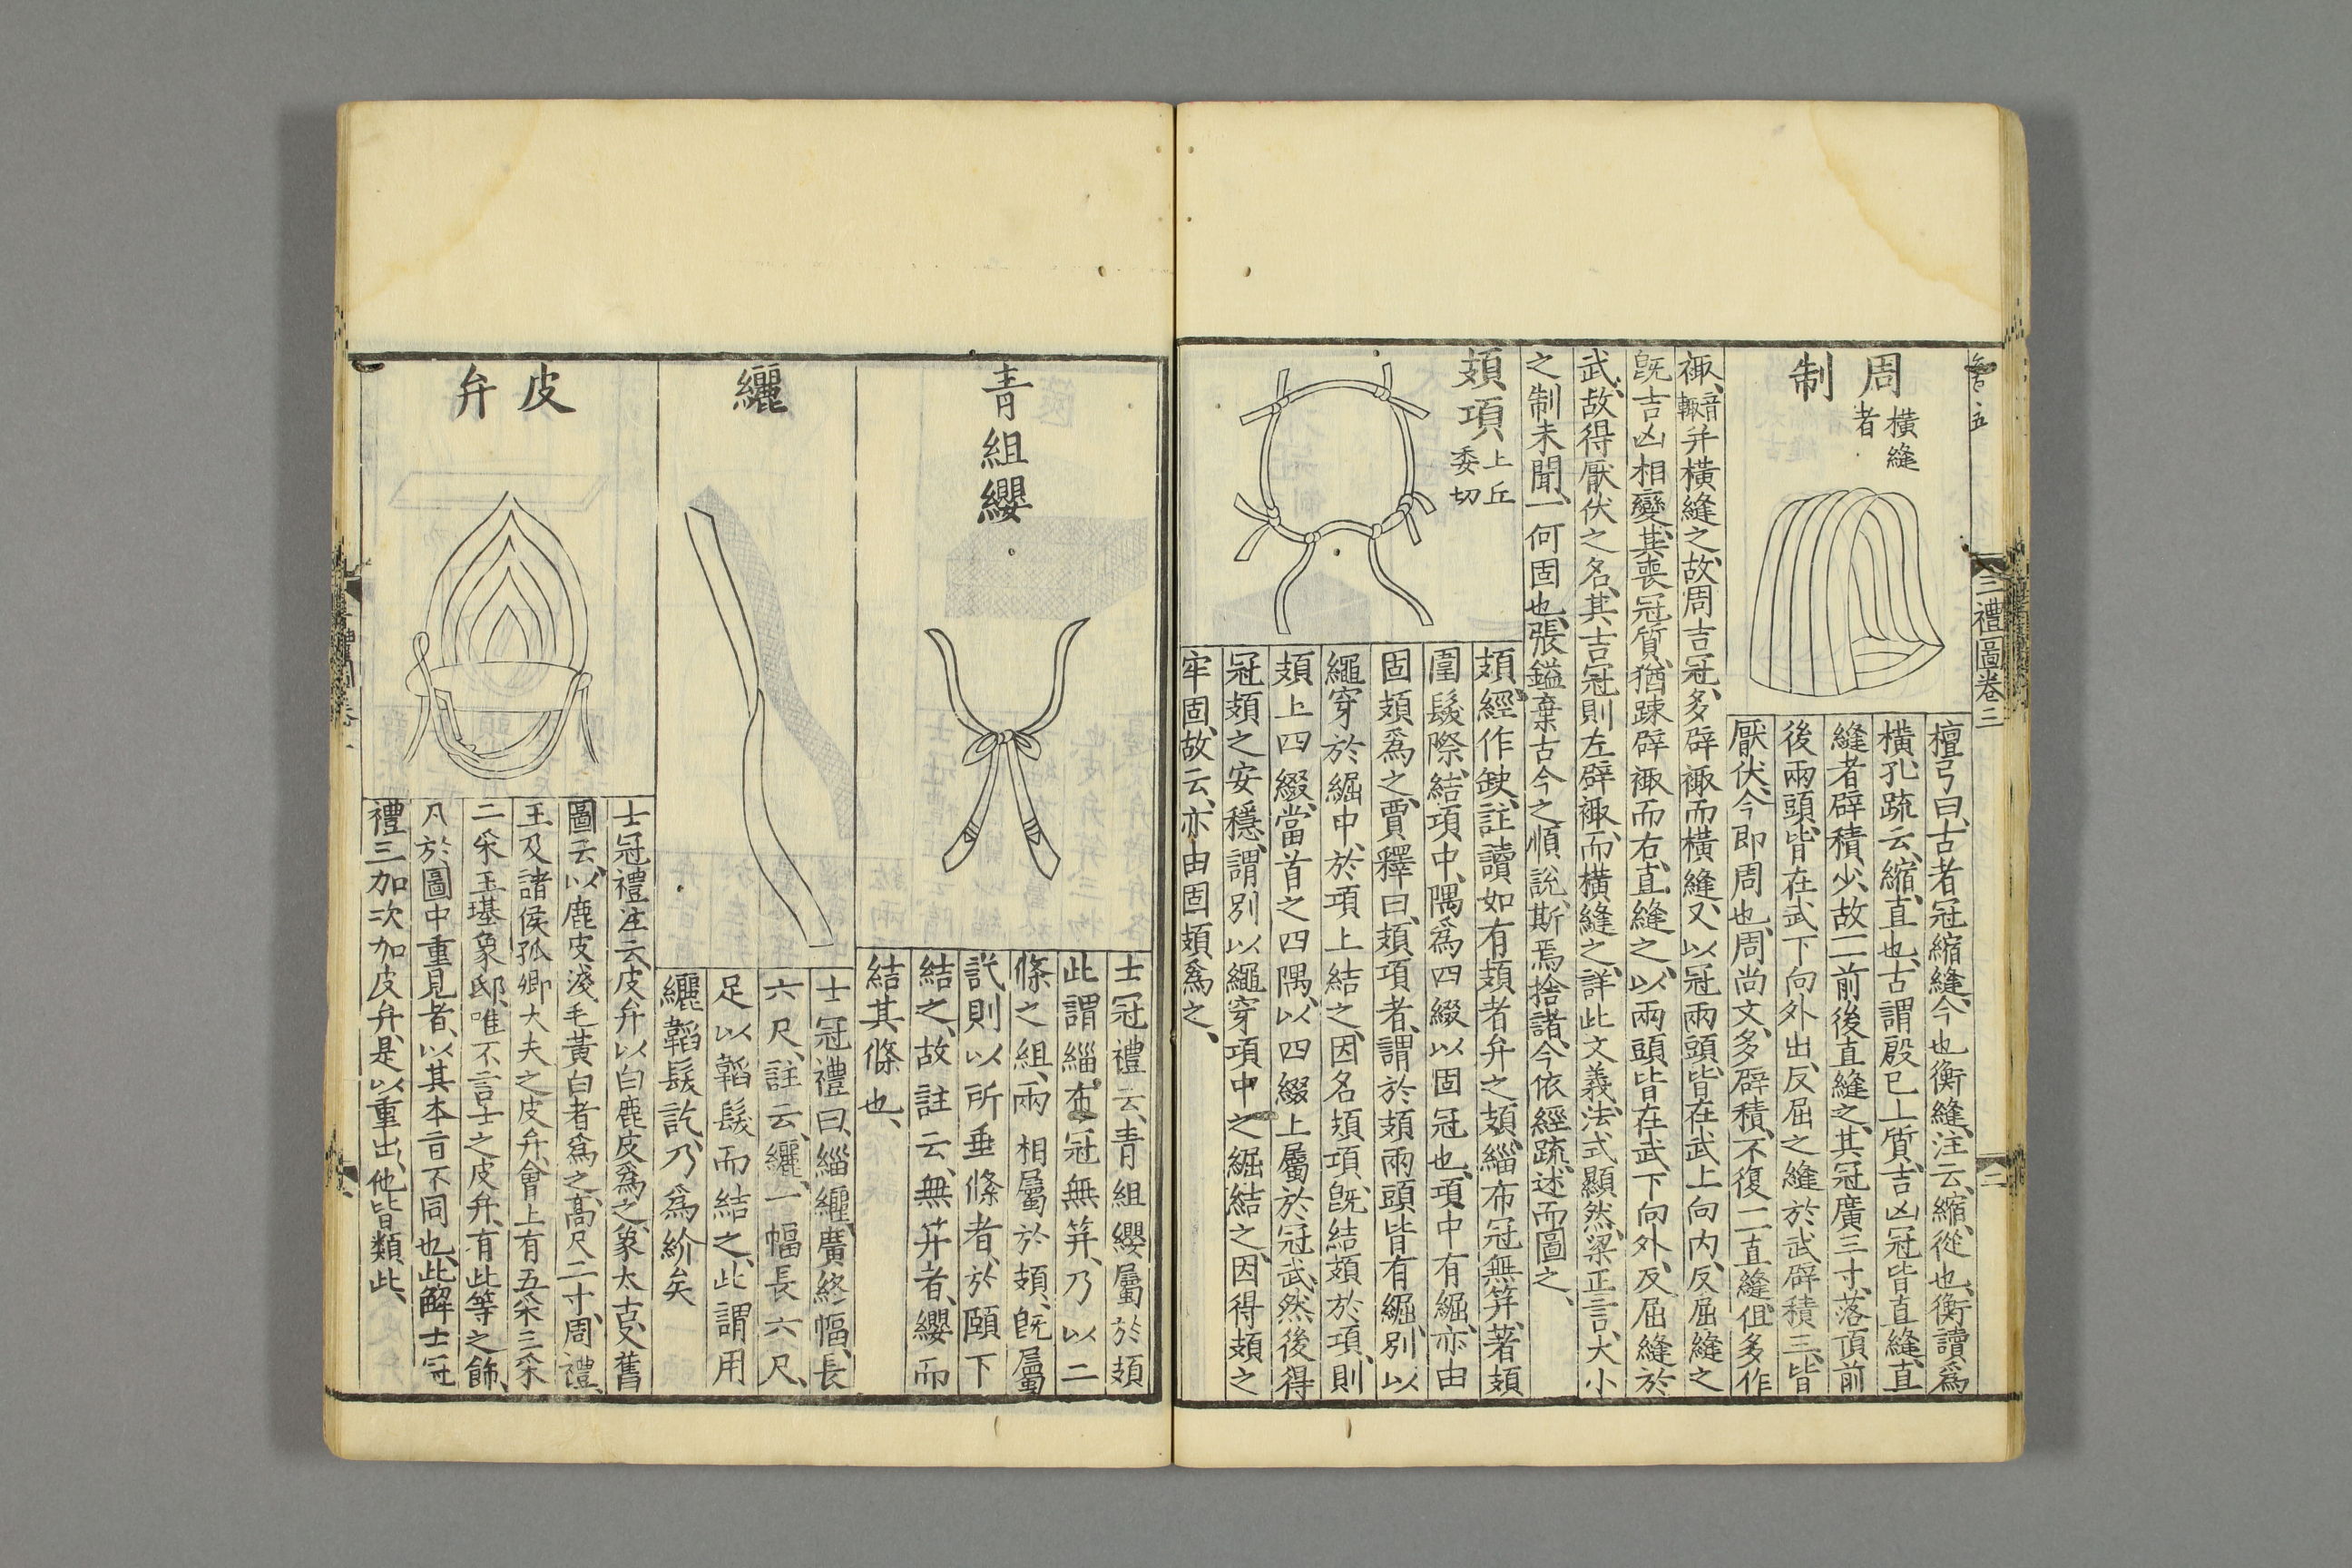 三禮圖卷三
二
周制
橫縫
者
檀弓曰古者冠縮縫今也衡縫注云縮從也衡讀爲
橫孔疏云縮直也古謂殷已上質吉凶冠皆直縫直
縫者辟積少故一一前後直縫之其冠廣三寸落頂前
後兩頭皆在武下向外出反屈之縫於武辟積三皆
厭伏今即周也周尚文多辟積不復一一直縫但多作
襵音輒并橫縫之故周吉冠多辟襵而橫縫又以冠兩頭皆在武上向内反屈縫之
旣吉凶相變其喪冠質猶疎辟襵而右直縫之以兩頭皆在武下向外反屈縫於
武故得厭伏之名其吉冠則左辟襵而橫縫之詳此文義法式顯然梁正言大小
之制未聞一何固也張鎰棄古今之順說斯焉捨諸今依經疏述而圖之
頍項
上丘
委切
頍經作缺註讀如有頍者弁之頍緇布冠無笄著頍
圍髮際結項中隅爲四綴以固冠也項中有䋎亦由
固頍爲之賈釋曰頍項者謂於頍兩頭皆有䋎別以
繩穿於䋎中於項上結之因名頍項旣結頍於項則
頍上四綴當首之四隅以四綴上屬於冠武然後得
冠頍之安穩謂別以繩穿項中之䋎結之因得頍之
牢固故云亦由固頍爲之
青組纓
士冠禮云青組纓屬於頍
此謂緇布冠無笄乃以二
條之組兩相屬於頍旣屬
訖則以所垂條者於頤下
結之故註云無笄者纓而
結其條也
纚
士冠禮曰緇纚廣終幅長
六尺註云纚一幅長六尺
足以韜髮而結之此謂用
纚韜髮訖乃爲紒矣
皮弁
士冠禮注云皮弁以白鹿皮爲之象太古又舊
圖云以鹿皮淺毛黃白者爲之高尺二寸周禮
王及諸侯孤卿大夫之皮弁會上有五采三采
二采玉璂象邸唯不言士之皮弁有此等之飾
凡於圖中重見者以其本旨不同也此解士冠
禮三加次加皮弁是以重出他皆類此